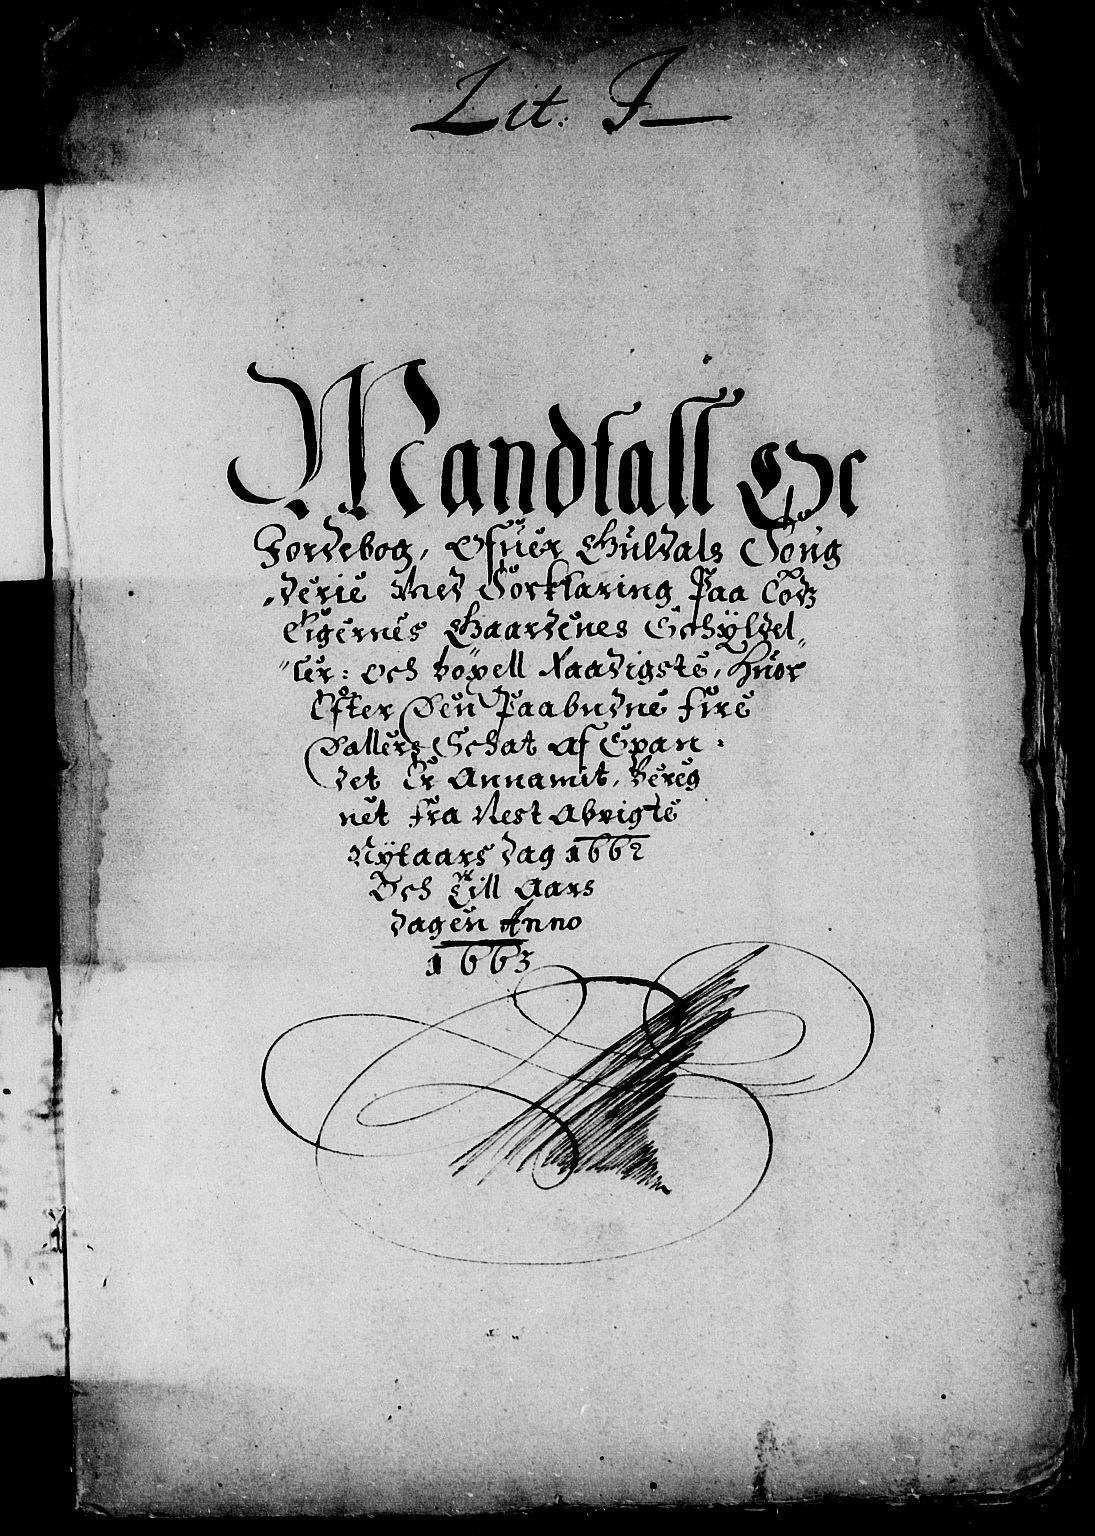 Lit: F
Mandtall Oc
Jordebog, Ofuer Guldals Foug
derie Med Forklaring Paa Lod
Eigernes Gaardenes Schÿldel
ler: och böxell Raadigste, huor
Efter Den Paabudne fire
Dallers Schat af Span:
det Er Annamit, Bereg
net fra Nest Abvigte
Nÿtaars dag 1662
Och Till Aars
dagen Anno
1663